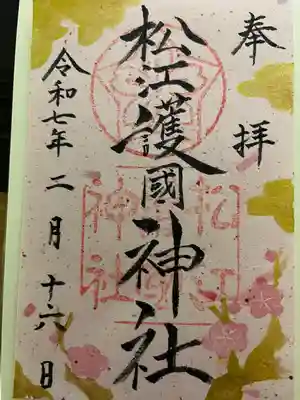 奉拝
松江護國神社
令和七年二月十六日